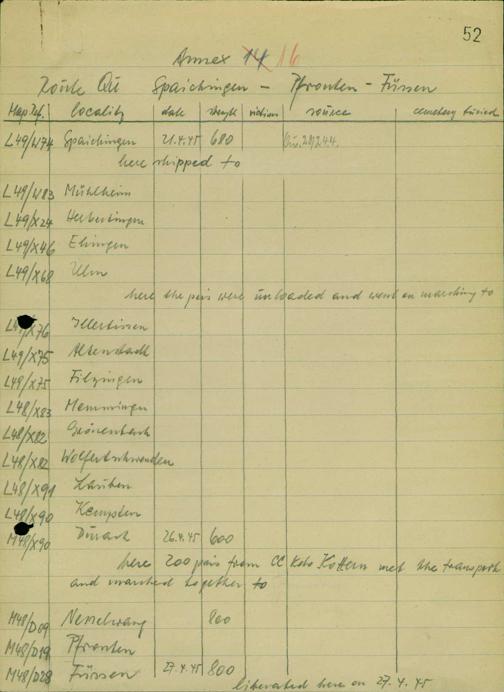 52
Annex 14 16
Route Qu Spaichingen - Pfronten - Füssen
Map Ref. locality date strength victims source cemetery buried
L49/W74 Spaichingen 21.4.45 680
here shipped to
L49/W83 Mühlheim
L49/X24 Herbertingen
L49/X46 Ehingen
L49/X68 Ulm
here the pris were unloaded and went on marching to
L49/X76 Illertissen
L49/X75 Altenstadt
L49/X75 Filzingen
L48/X83 Memmingen
L48/X82 Grönenbach
L48/X82 Wolfertschwenden
L48/X91 Lauben
L48/X90 Kempten
M48/X90 Durach 26.4.45 600
here 200 pris from CC Kdo Kottern met the transport
and marched together to
M48/D09 Nesselwang 800
M48/D19 Pfronten
M48/D28 Füssen 27.4.45 800
liberated here on 27.4.45